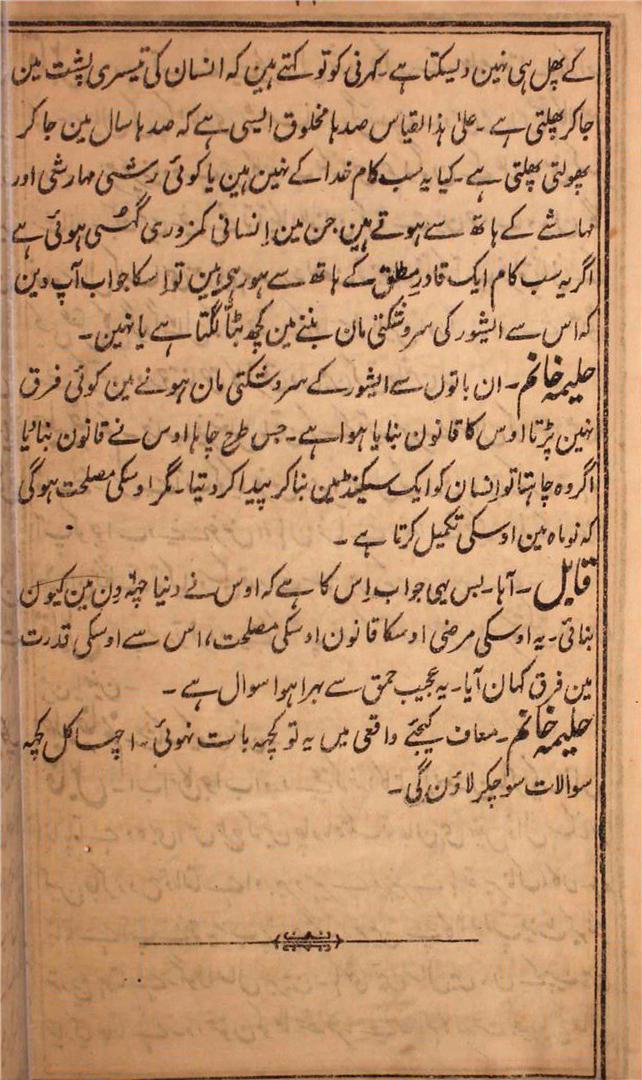 کے پھل ہی نہین دیسکتا ہے۔ کہرنی کو تو کہتے ہین کہ انسان کی تیسری پشت مین
جا کر پھلتی ہے۔ علیٰ ہذالقیاس صدہا مخلوق ایسی ہے کہ صدہا سال مین جا کر
پھولتی پھلتی ہے۔ کیا یہ سب کام خدا کے نہین ہین یا کوئی رشی مہارشی اور
مہاشے کے ہاتھ سے ہوتے ہین جن مین اِنسانی کمزوری گھسی ہوئی ہے
اگر یہ سب کام ایک قادرِ مطلق کے ہاتھ سے ہو رہی ہین تو اِسکا جواب آپ دین
کہ اس سے ایشور کی سروشکتی مان بننے مین کچھ بٹّا لگتا ہے یا نہین۔
حلیمہ خانم۔ ان باتون سے ایشور کے سروشکتی مان ہونے مین کوئی فرق
نہین پڑتا اوس کا قانون بنایا ہوا ہے۔ جس طرح چاہا اوس نے قانون بنا لیا
اگر وہ چاہتا تو اِنسان کو ایک سیکنڈ مین بنا کر پیدا کر دیتا۔ مگر اوسکی مصلحت ہوگی
کہ نو ماہ مین اوسکی تکمیل کرتا ہے۔
قابل۔ آہا۔ بس یہی جواب اِس کا ہے کہ اوس نے دنیا چھ دن مین کیون
بنائی۔ یہ اوسکی مرضی اوسکا قانون اوسکی مصلحت، اس سے اوسکی قدرت
مین فرق کہان آیا۔ یہ عجیب حمق سے بہرا ہوا سوال ہے۔
حلیمہ خانم۔ معاف کیجئے واقعی میں یہ تو کچہہ بات نہوئی۔ اچہا کل کچہہ
سوالات سوچکر لاؤن گی۔